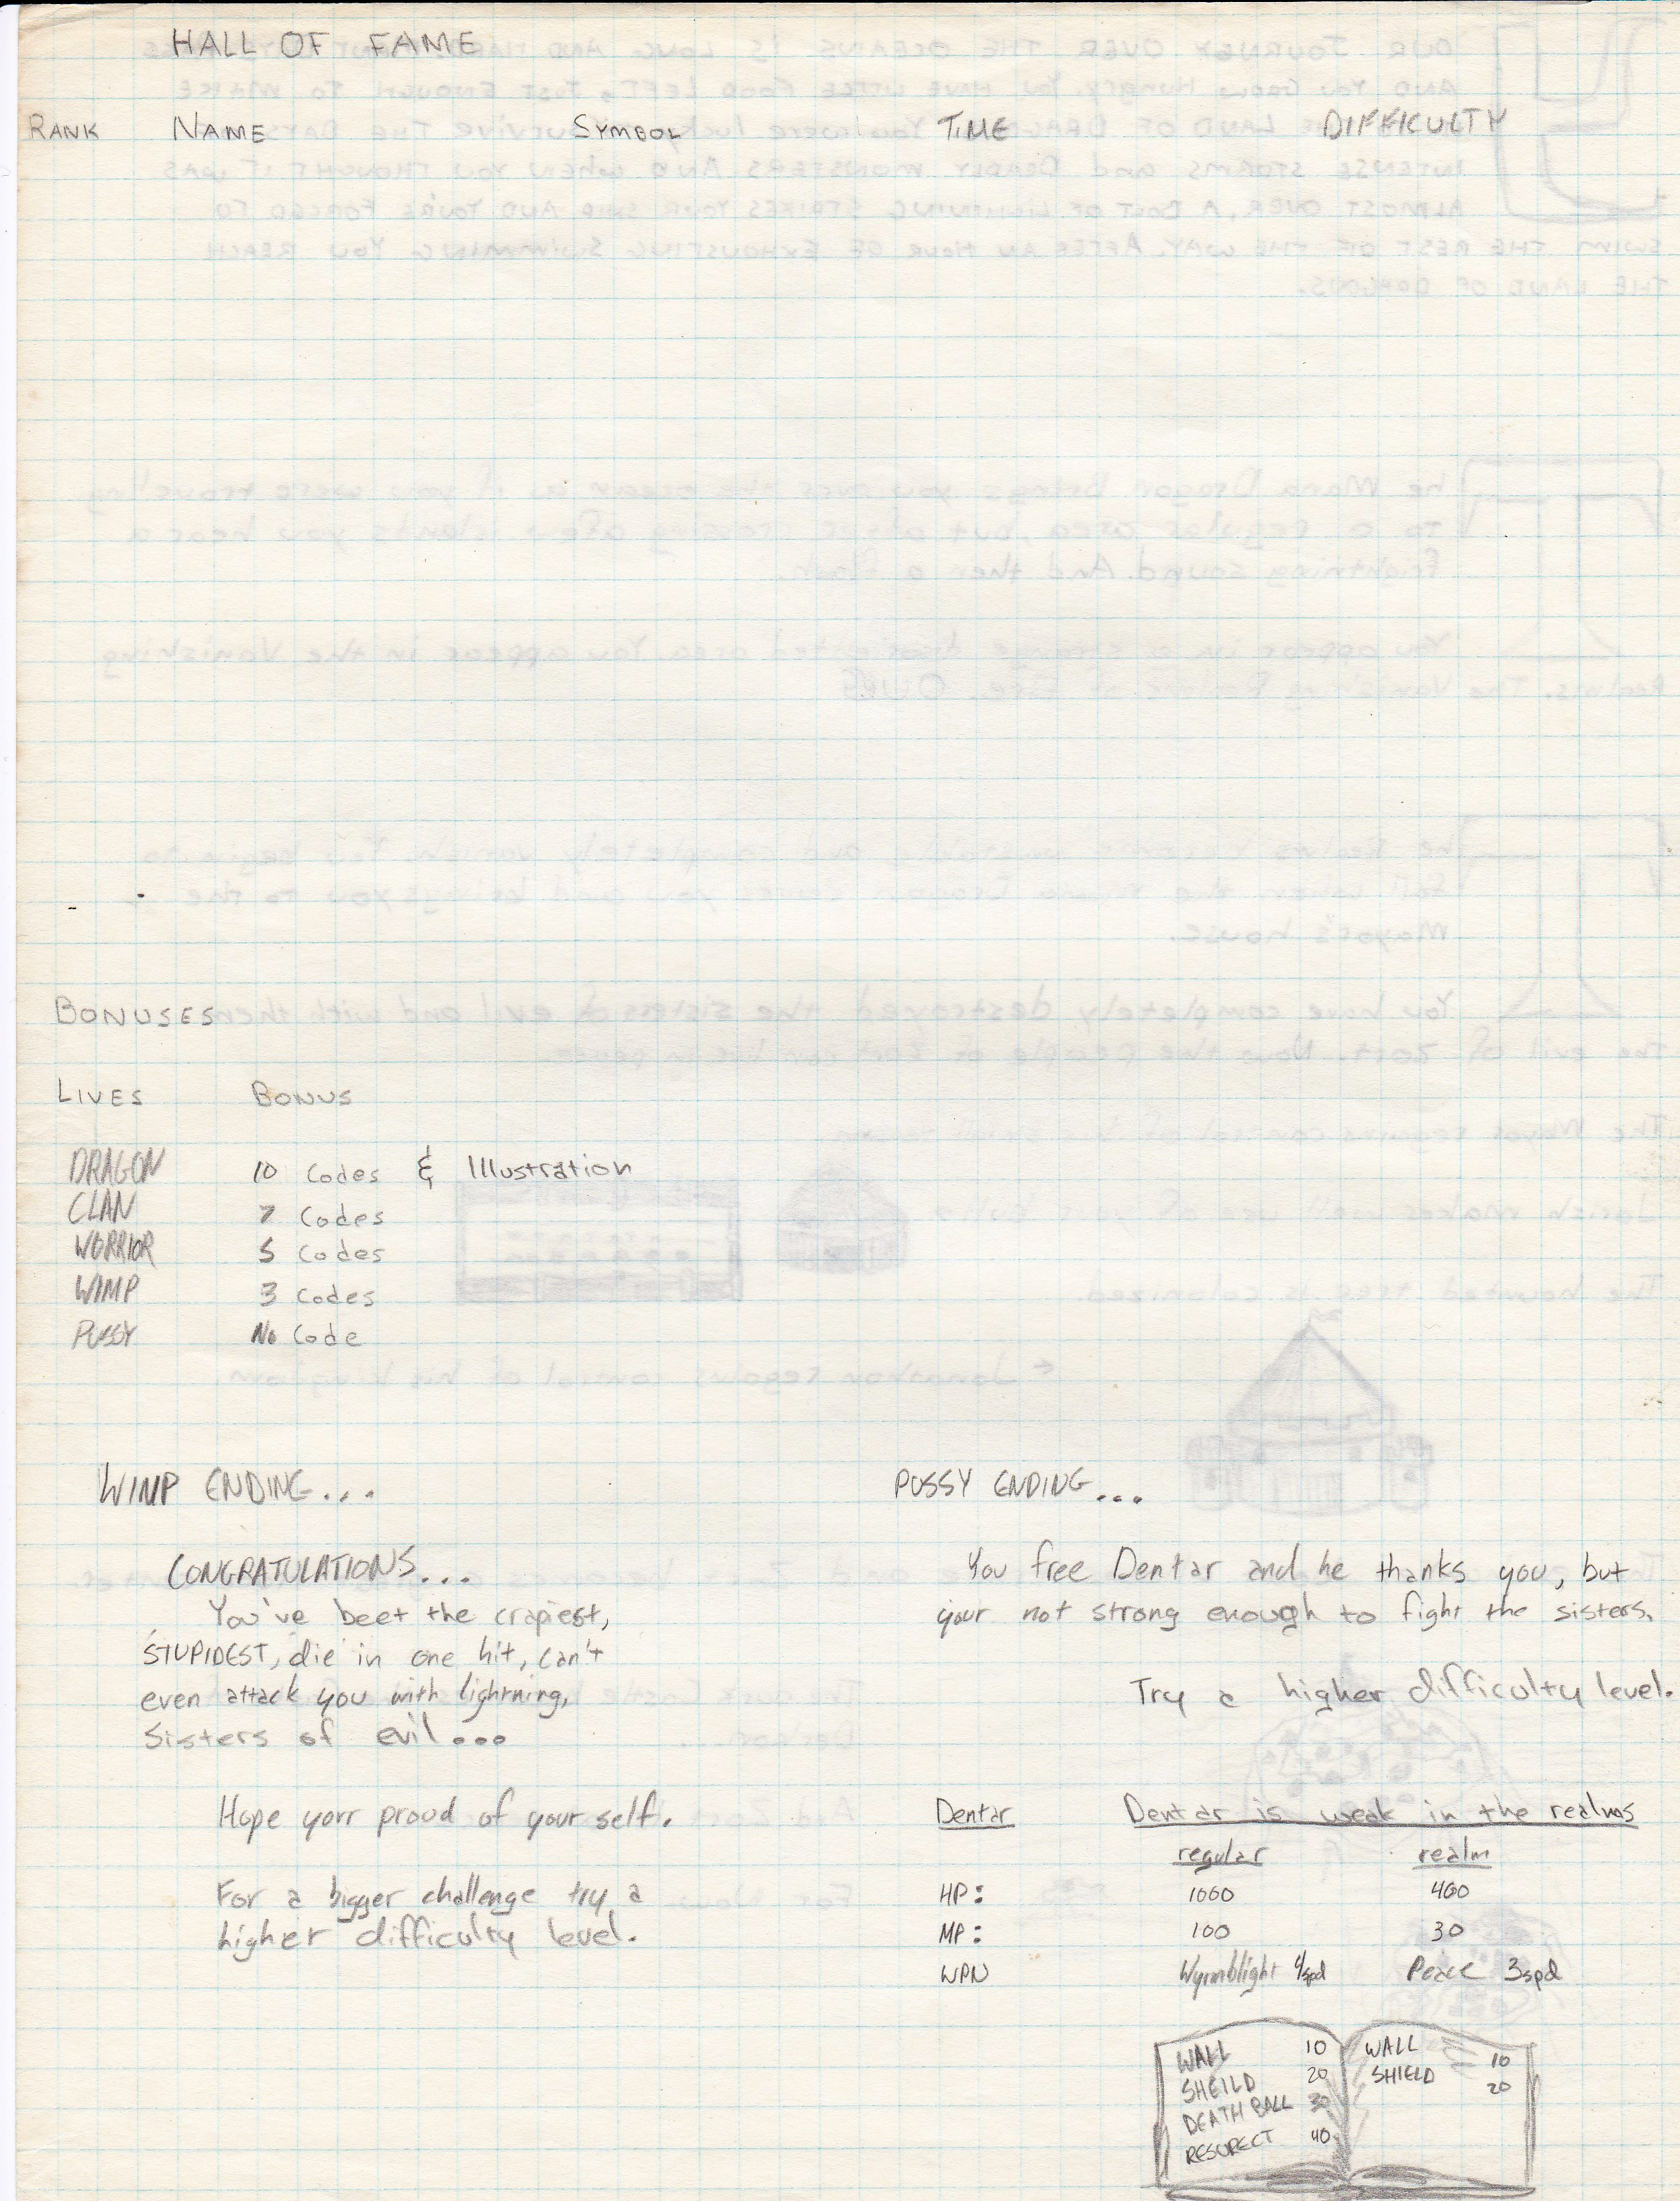 HALL OF FAME
RANK NAME SYMBOL TIME DIFFICULTY
BONUSES
LIVES BONUS
DRAGON 10 Codes & Illustration
CLAN 7 Codes
WORRIOR 5 Codes
WIMP 3 Codes
PUSSY No Code
WIMP ENDING...
CONGRATULATIONS...
You've beet the crapiest,
STUPIDEST, die in one hit, can't
even attack you with lightning,
Sisters of evil...
Hope your proud of your self.
For a bigger challenge try a
higher difficulty level.
PUSSY ENDING...
You free Dentar and he thanks you, but
your not strong enough to fight the sisters.
Try a higher difficulty level.
Dentar Dentar is weak in the realms
regular realm
HP: 1000 400
MP: 100 30
WPN Wyrmblight 4spd Peace 3spd
WALL 10
SHEILD 20
DEATH BALL 30
RESURECT 40
WALL 10
SHIELD 20